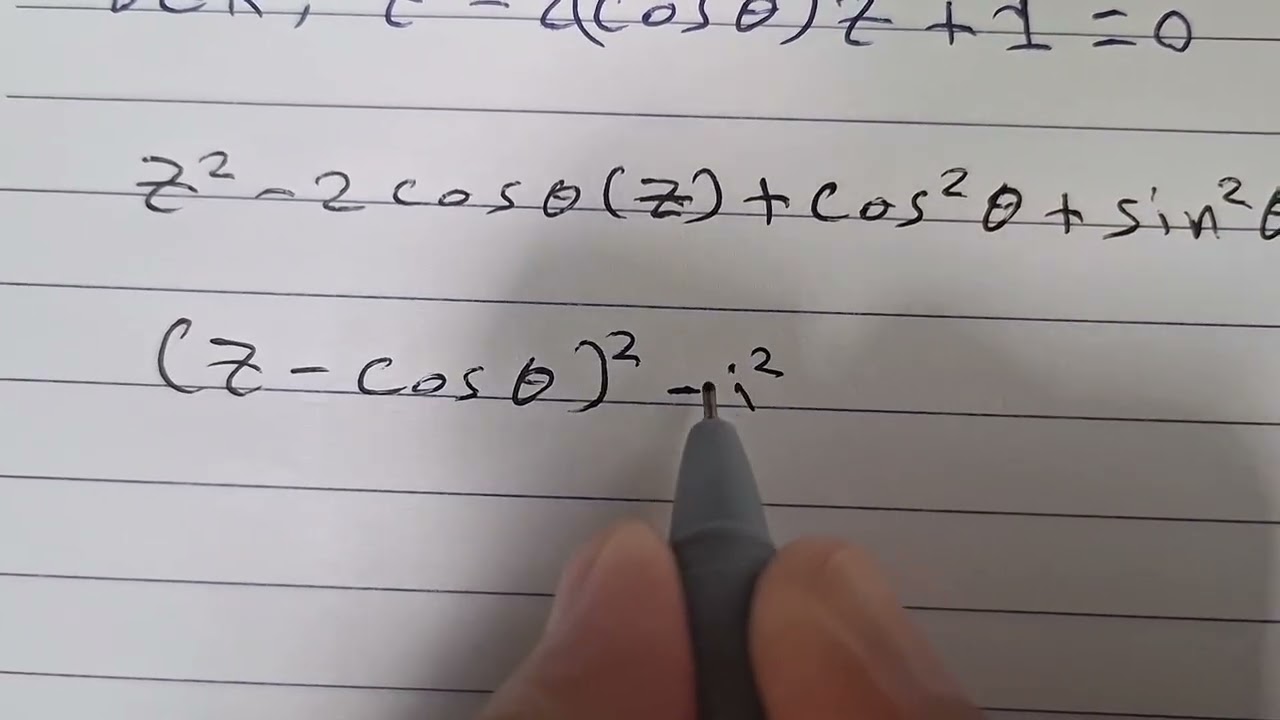 θ∈R, z² - 2(cosθ)z + 1 = 0
z² - 2cosθ(z) + cos²θ + sin²θ
(z - cosθ)² - i²